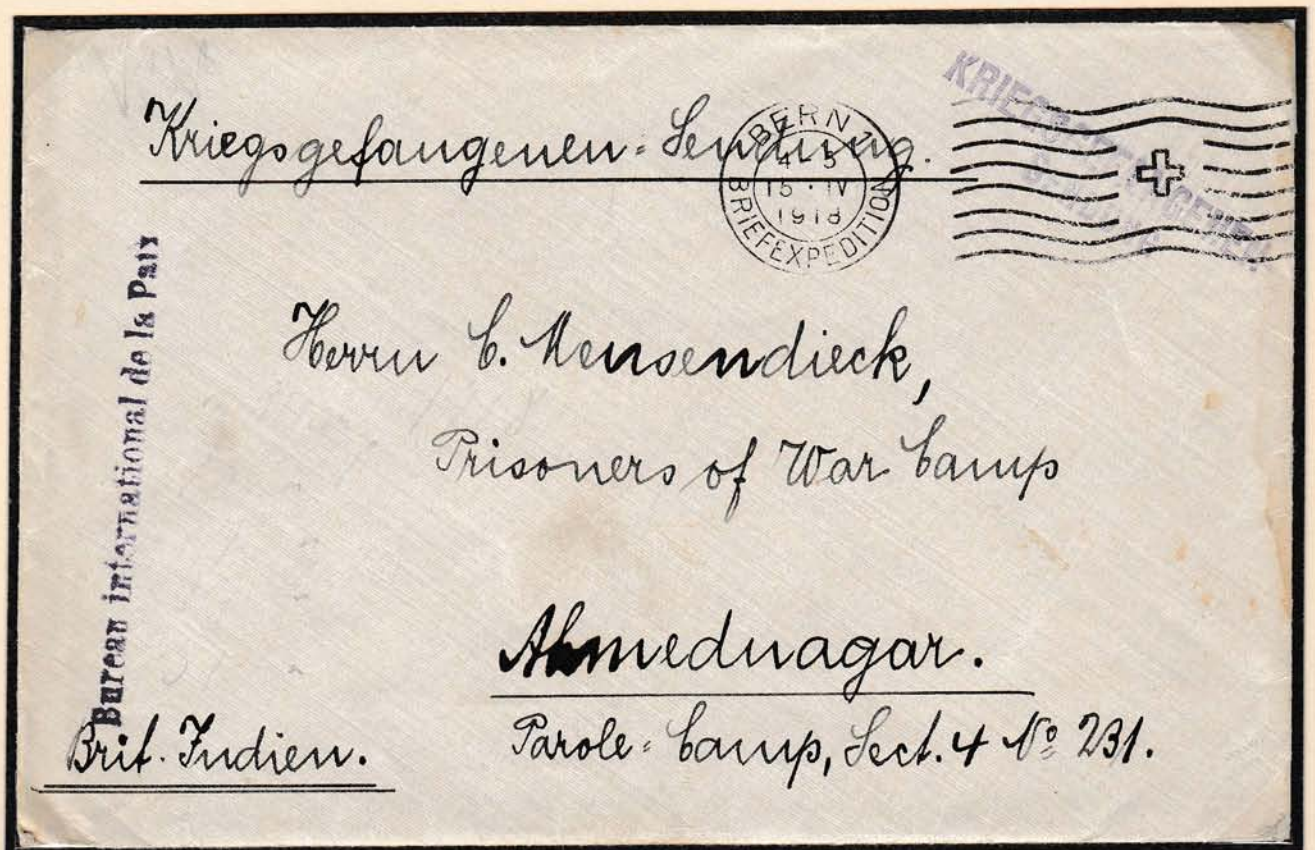 Kriegsgefangenen-Sendung.
BERN 1
4-5
15·IV
1918
BRIEFEXPEDITION
KRIEGSGEFANGENEN-
SENDUNG
Bureau international de la Paix
Herrn C. Mensendieck,
Prisoners of War Camp
Ahmednagar.
Parole-Camp, Sect. 4 No 231.
Brit. Indien.